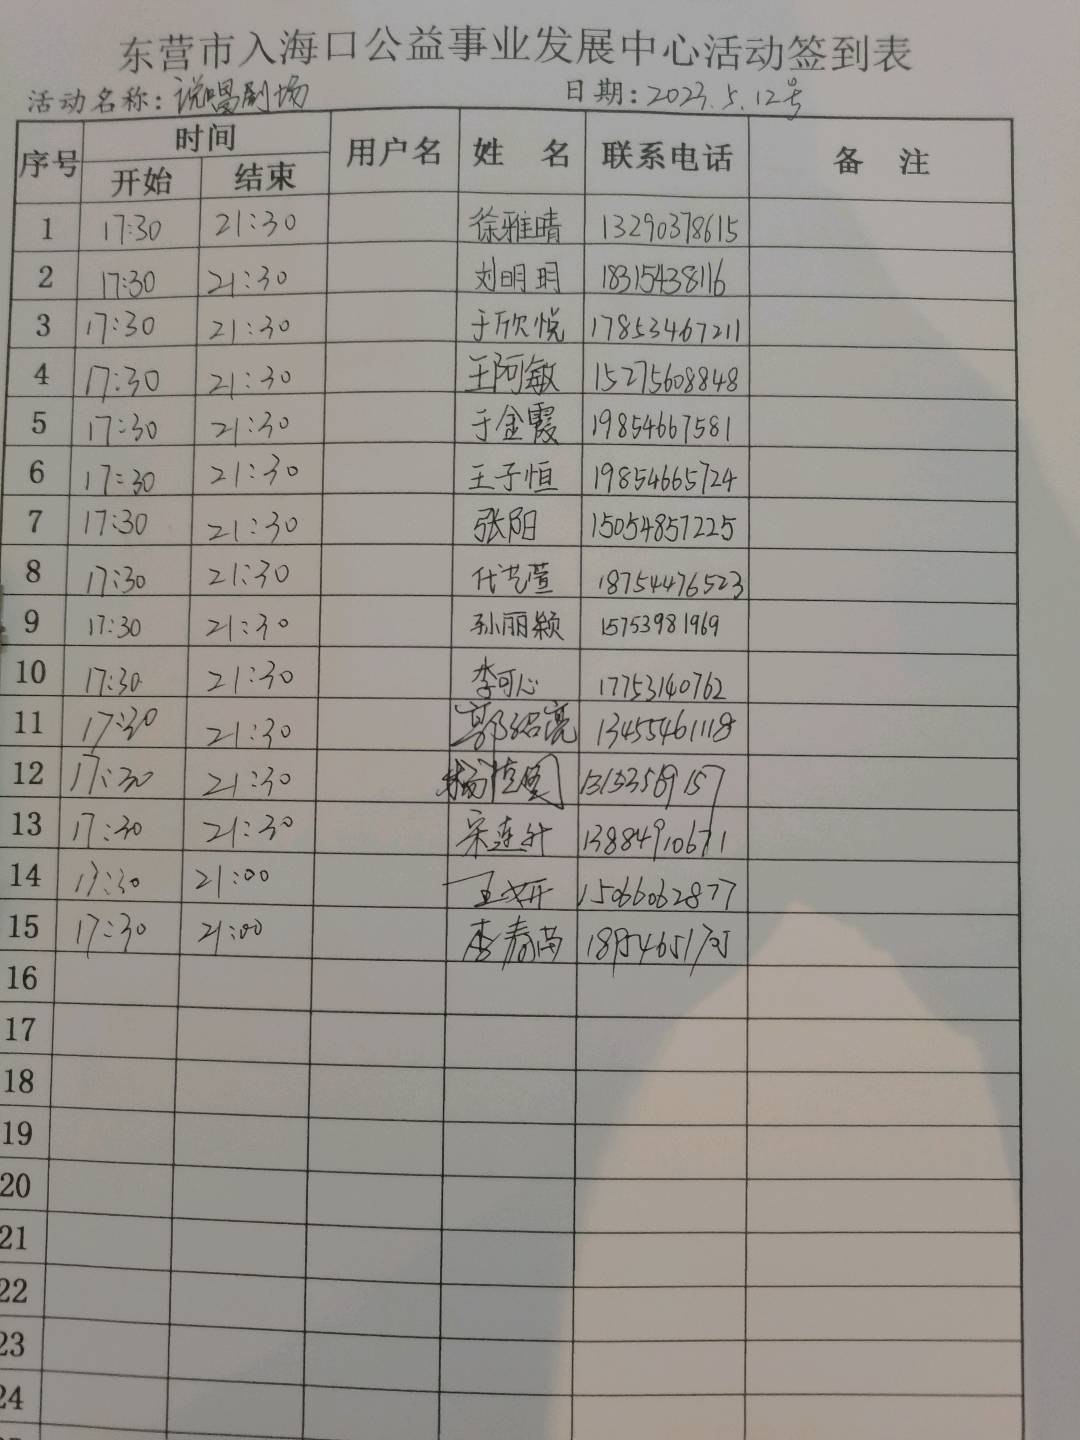 东营市入海口公益事业发展中心活动签到表
活动名称：说唱剧场 日期：2023.5.12号
序号 时间 用户名 姓 名 联系电话 备 注
开始 结束
1 17:30 21:30 徐雅晴 13290378615
2 17:30 21:30 刘明明 18315438116
3 17:30 21:30 于欣悦 17853467211
4 17:30 21:30 王阿敏 15275608848
5 17:30 21:30 于金霞 19854667581
6 17:30 21:30 王子恒 19854665724
7 17:30 21:30 张阳 15054857225
8 17:30 21:30 代艺萱 18754476523
9 17:30 21:30 孙丽颖 15753981969
10 17:30 21:30 李可心 17753140762
11 17:30 21:30 郭绍亮 13455461118
12 17:30 21:30
13 17:30 21:30 宋连升 13884910671
14 17:30 21:00 王妍 15066062877
15 17:30 21:00 李春苗
16
17
18
19
20
21
22
23
24